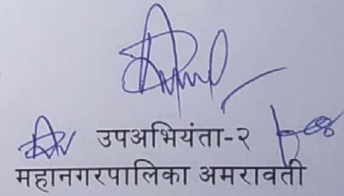 उपअभियंता-२
महानगरपालिका अमरावती